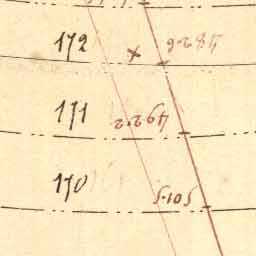 172
482.6
171
492.2
170
501.5